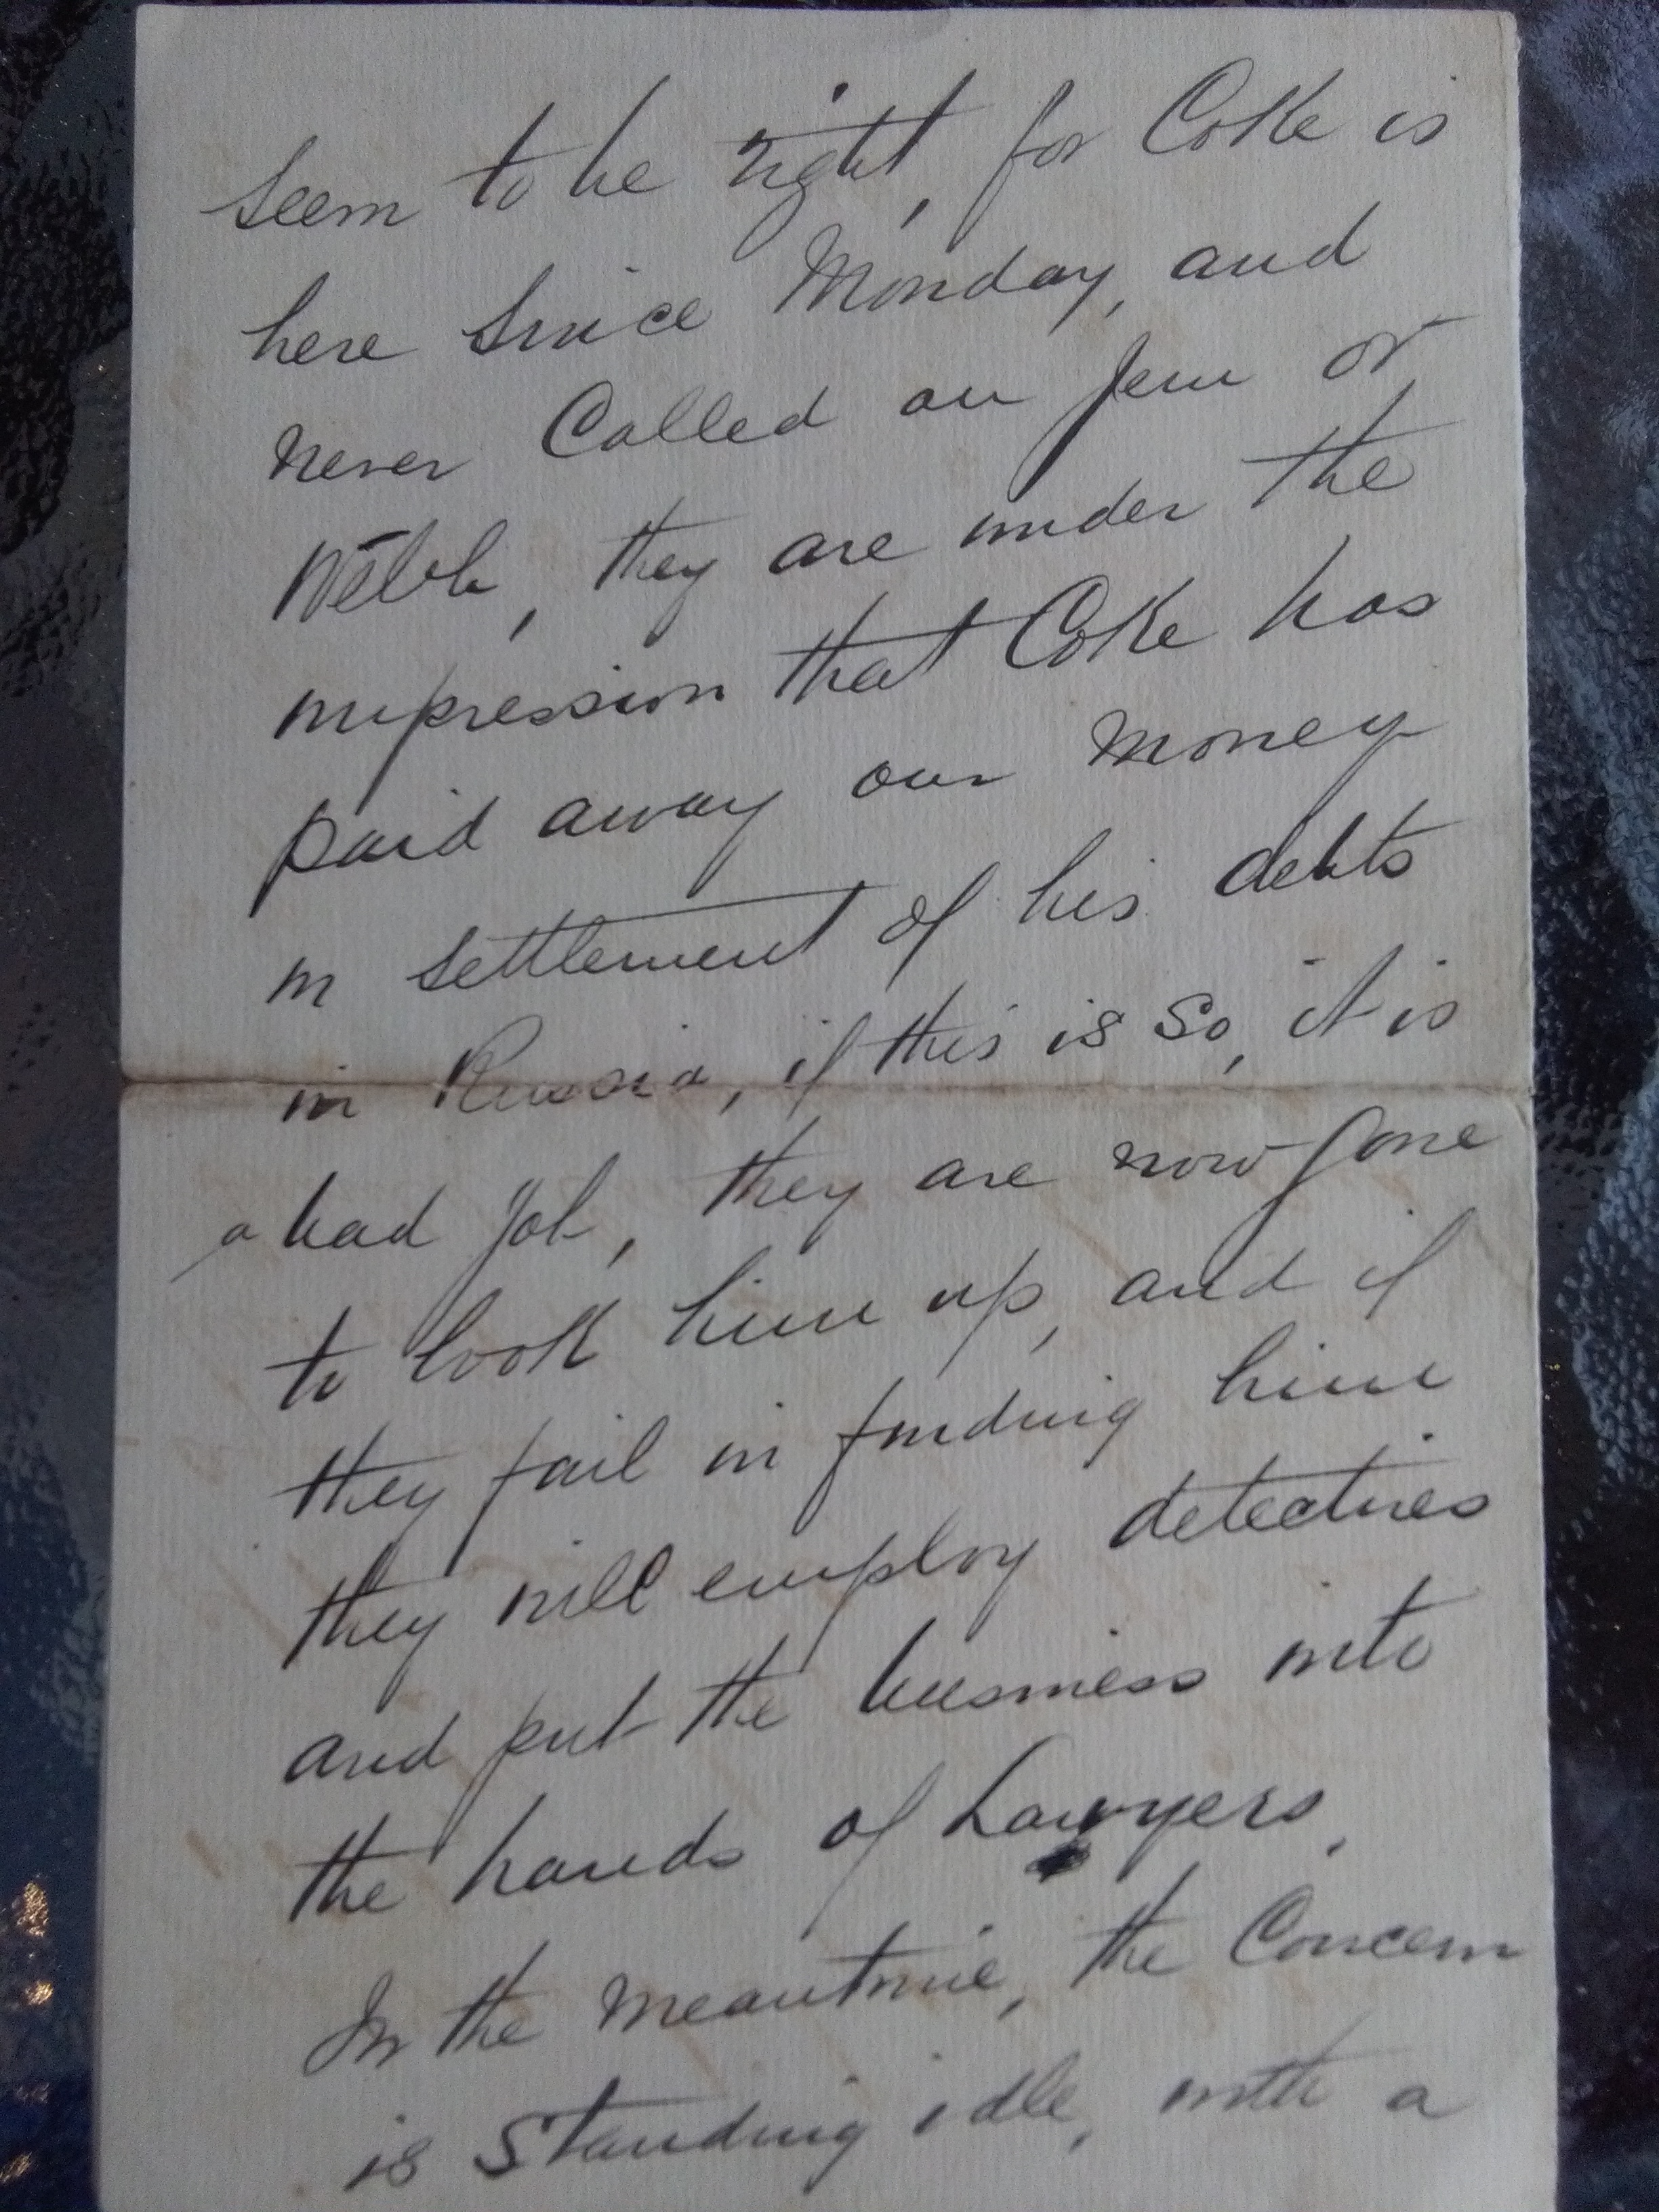 seem to be right, for Coke is
here since Monday, and
never Called on Jem or
Webb, they are under the
impression that Coke has
paid away our money
in settlement of his debts
in Russia, if this is so, it is
a bad job, they are now gone
to look him up, and if
they fail in finding him
they will employ detectives
and put the business into
the hands of Lawyers.
In the meantime, the Concern
is standing idle, with a